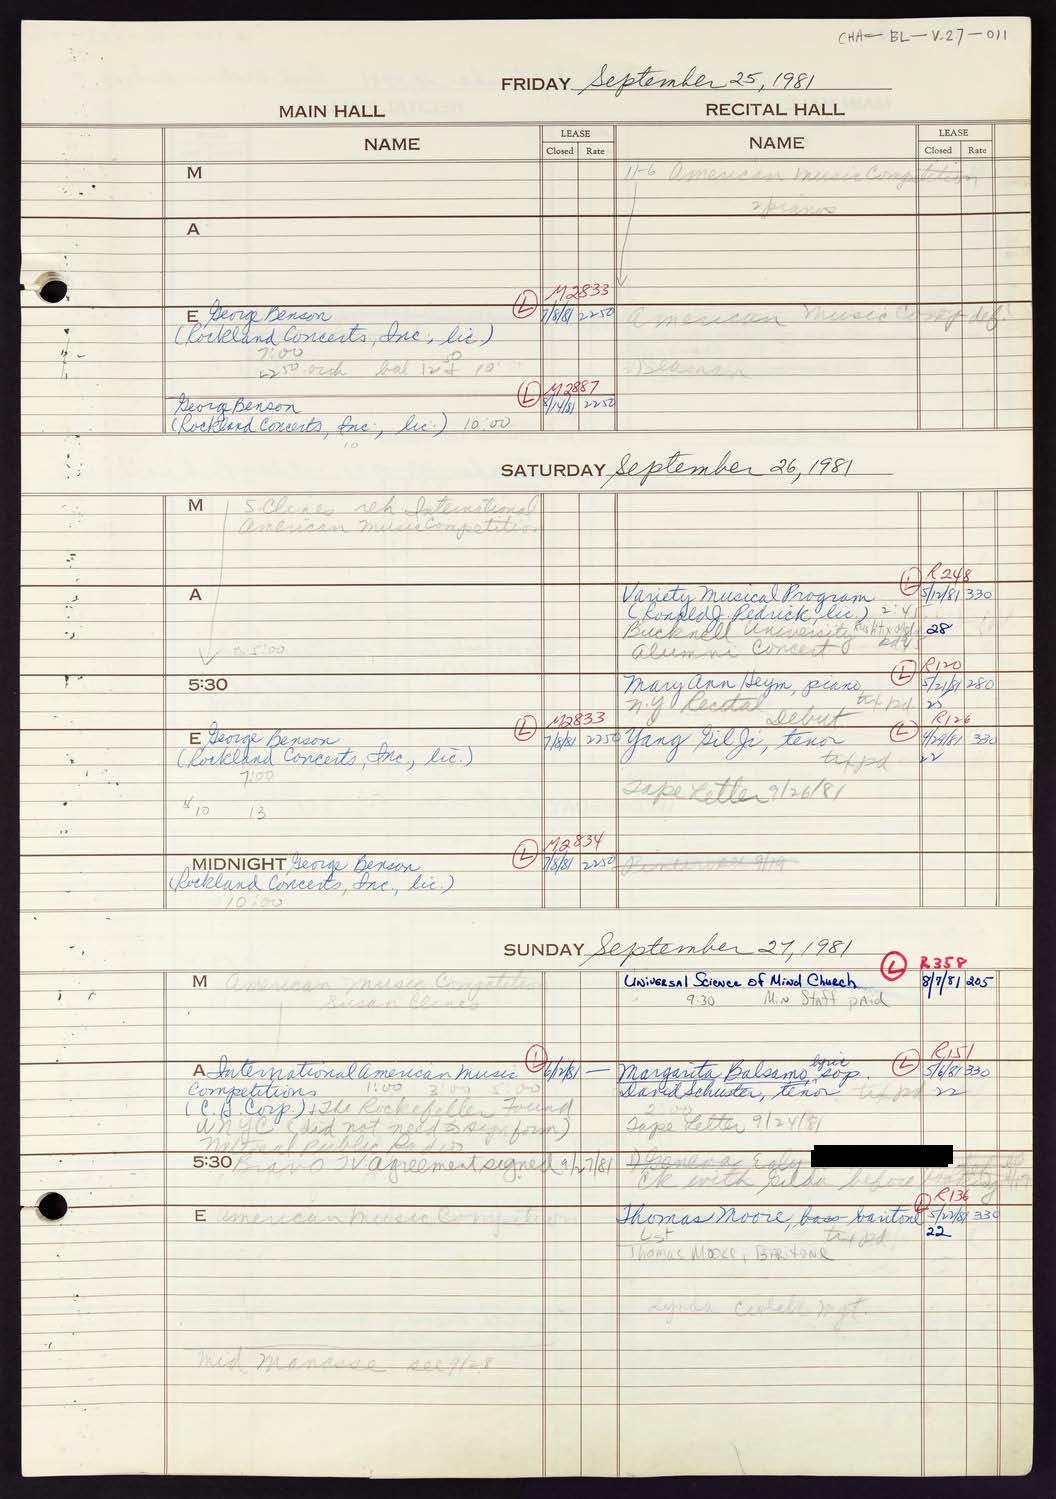 CHA-BL-V.27-011
FRIDAY September 25, 1981
MAIN HALL
RECITAL HALL
NAME
LEASE
Closed Rate
NAME
LEASE
Closed Rate
M
11-6 American Music Competition
2 pianos
A
L M2833
E George Benson 7/8/81 2250
(Rockland Concerts, Inc., lic)
7:00
American Music Comp
L M2887
George Benson 8/14/81 2250
(Rockland Concerts, Inc., lic.) 10:00
10
SATURDAY September 26, 1981
M S. Clines reh International
American Music Competition
A
5:00
L R248
Variety Musical Program 5/12/81 330
(Ronald J. Pedrick, lic.) 2:45
Bucknell University 28
Alumni Concert
5:30
L R120
Mary Ann Heym, piano 5/21/81 280
N.Y. Recital Debut tax pd 22
L M2833
E George Benson 7/8/81 2250
(Rockland Concerts, Inc., lic.)
7:00
10 13
L R126
Yang Gil Ji, tenor 4/29/81 330
tax pd 22
Tape Letter 9/26/81
L M2834
MIDNIGHT George Benson 7/8/81 2250
(Rockland Concerts, Inc., lic.)
10:00
9/19
SUNDAY September 27, 1981
M American Music Competition
Susan Clines
L R358
Universal Science of Mind Church 8/7/81 205
9:30 Min Staff paid
L
A International American Music 6/2/81 —
Competitions 1:00 3:00 5:00
(C.H. Corp.) & The Rockefeller Found
WNYC (did not need to sign form)
National Public Radio
L R151
Margarita Balsamo, lyric sop. 5/6/81 330
David Schuster, tenor tax pd 22
2:00
Tape Letter 9/24/81
5:30 Bravo TV agreement signed 9/27/81
Ck with Gilda before booking
E American Music Competition
L R136
Thomas Moore, bass-baritone 5/22/81 330
Lst tax pd 22
Thomas Moore, Baritone
Mid Manasse see 9/28